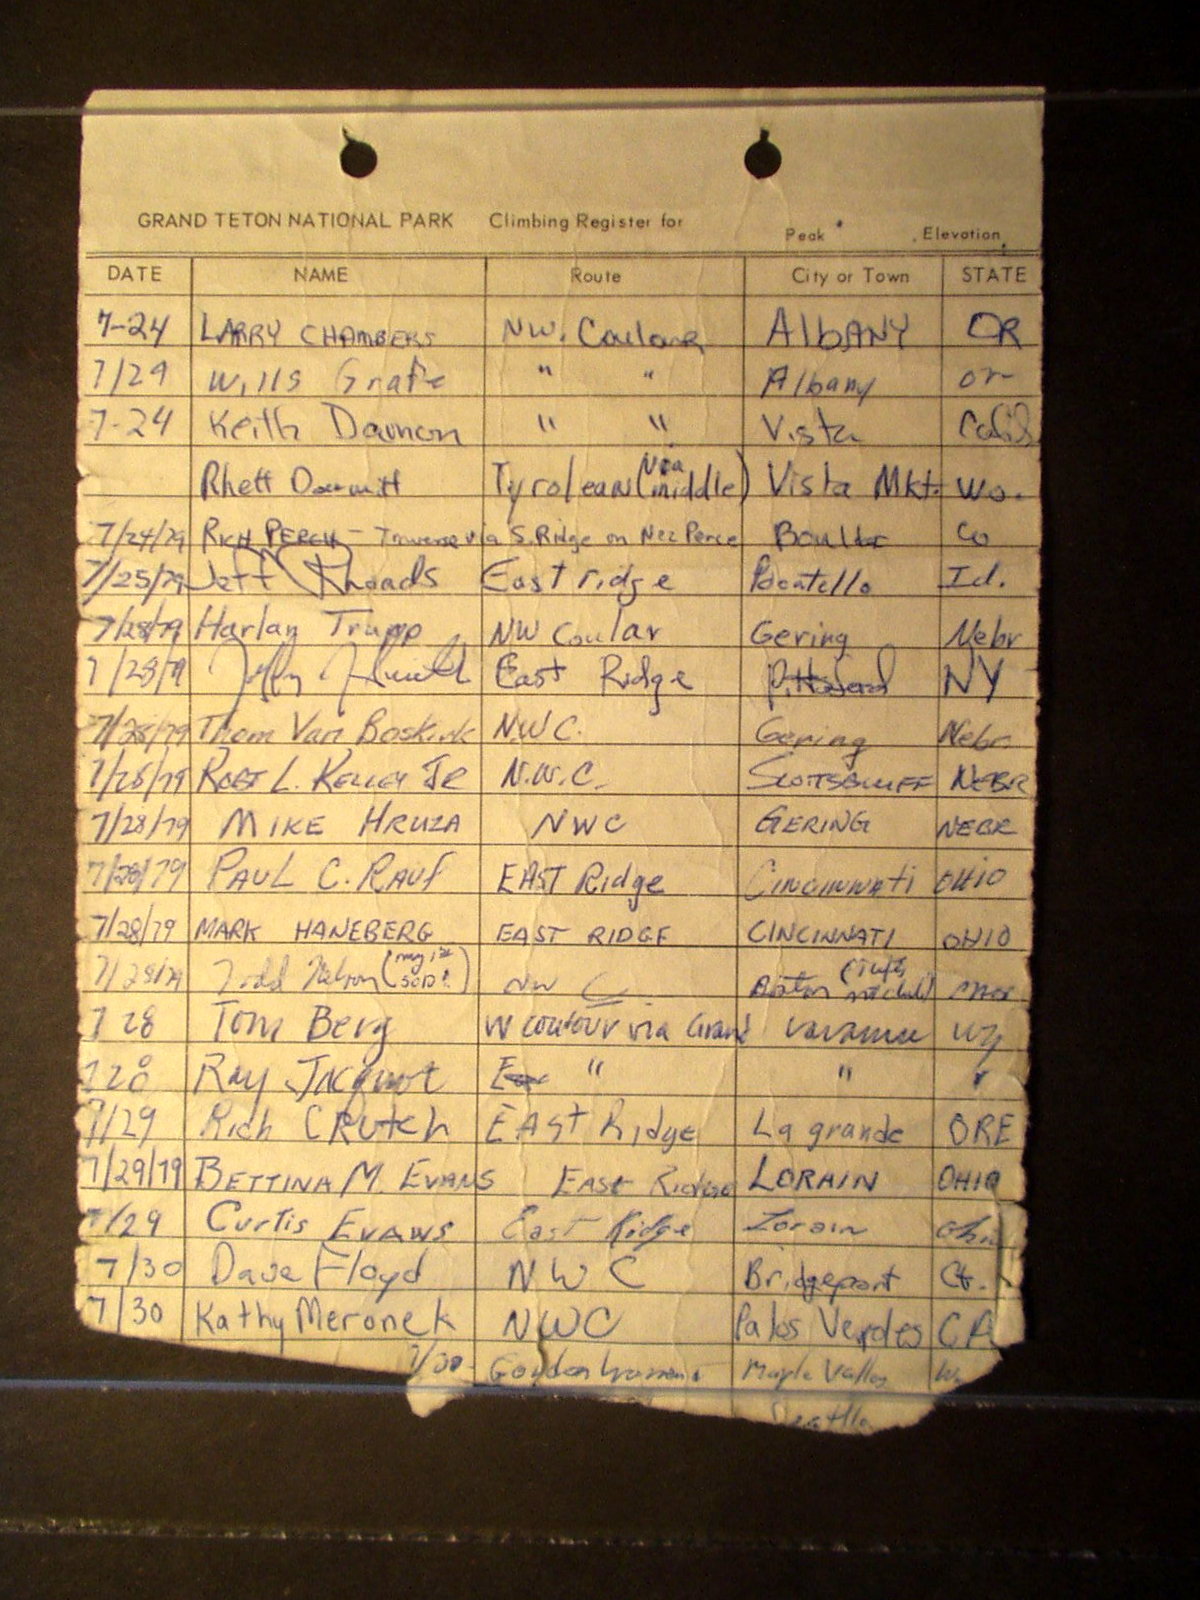 GRAND TETON NATIONAL PARK Climbing Register for Peak Elevation
DATE NAME Route City or Town STATE
7-24 LARRY CHAMBERS NW. Couloar ALbANY OR
7/29 Wills Grafe " " Albany or
7-24 Keith Damon " " Vista Calif
Rhett Tyrolean (via middle) Vista Mkt. Wo.
7/24/79 RICH PERCH - Traverse via S. Ridge on Nez Perce Boulder Co
7/25/79 Jeff Rhoads East ridge Pocatello Id.
7/28/79 Harlan Trupp NW Coular Gering Nebr
7/28/79 East Ridge NY
7/28/79 Thom Van Boskirk N.W C. Gering Nebr.
7/28/79 ROBT L. KELLEY JR N.W.C. SCOTSBLUFF NEBR
7/28/79 MIKE HRUZA NWC GERING NEBR
7/28/79 PAUL C. RAUf EAST Ridge Cincinnati OHIO
7/28/79 MARK HANEBERG EAST RIDGE CINCINNATI OHIO
7/28/79 Todd Nelson (my 1st NW C
7 28 Tom Berg W coutour via Grand Laramie Wy
7 28 Ray Jacquot " " "
7/29 Rich CRutch EASt Ridge La grande ORE
7/29/79 BETTINA M. EVANS EAST RIDGE LORAIN OHIO
7/29 Curtis EVANS East Ridge Lorain Ohio
7/30 Dave Floyd NWC Bridgeport Ct.
7/30 Kathy Meronek NWC Palos Verdes CA
7/30 Gordon Maple Valley W
Seattle